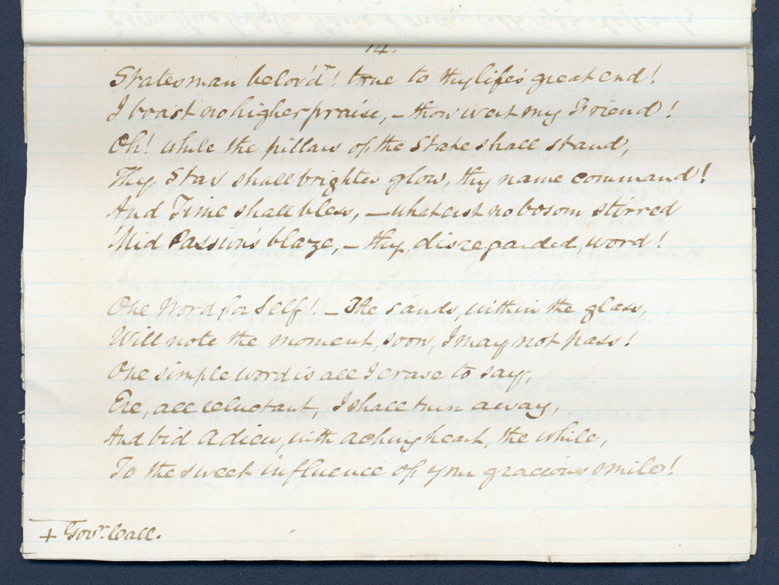 14.
Statesman belov'd! true to thy life's great end!
I boast no higher praise, – thou wert my Friend!
Oh! while the pillars of the State shall stand,
Thy Star shall brighter glow, thy name command!
And Time shall bless, – what erst no bosom stirred
'Mid Passion's blaze, – thy, disregarded, word!
One Word for Self! – The sands, within the glass,
Will note the moment, soon, I may not pass!
One simple word is all I crave to say,
Ere, all reluctant, I shall turn away,
And bid adieu, with aching heart, the while,
To the sweet influence of your gracious smile!
+ Govr. Call.